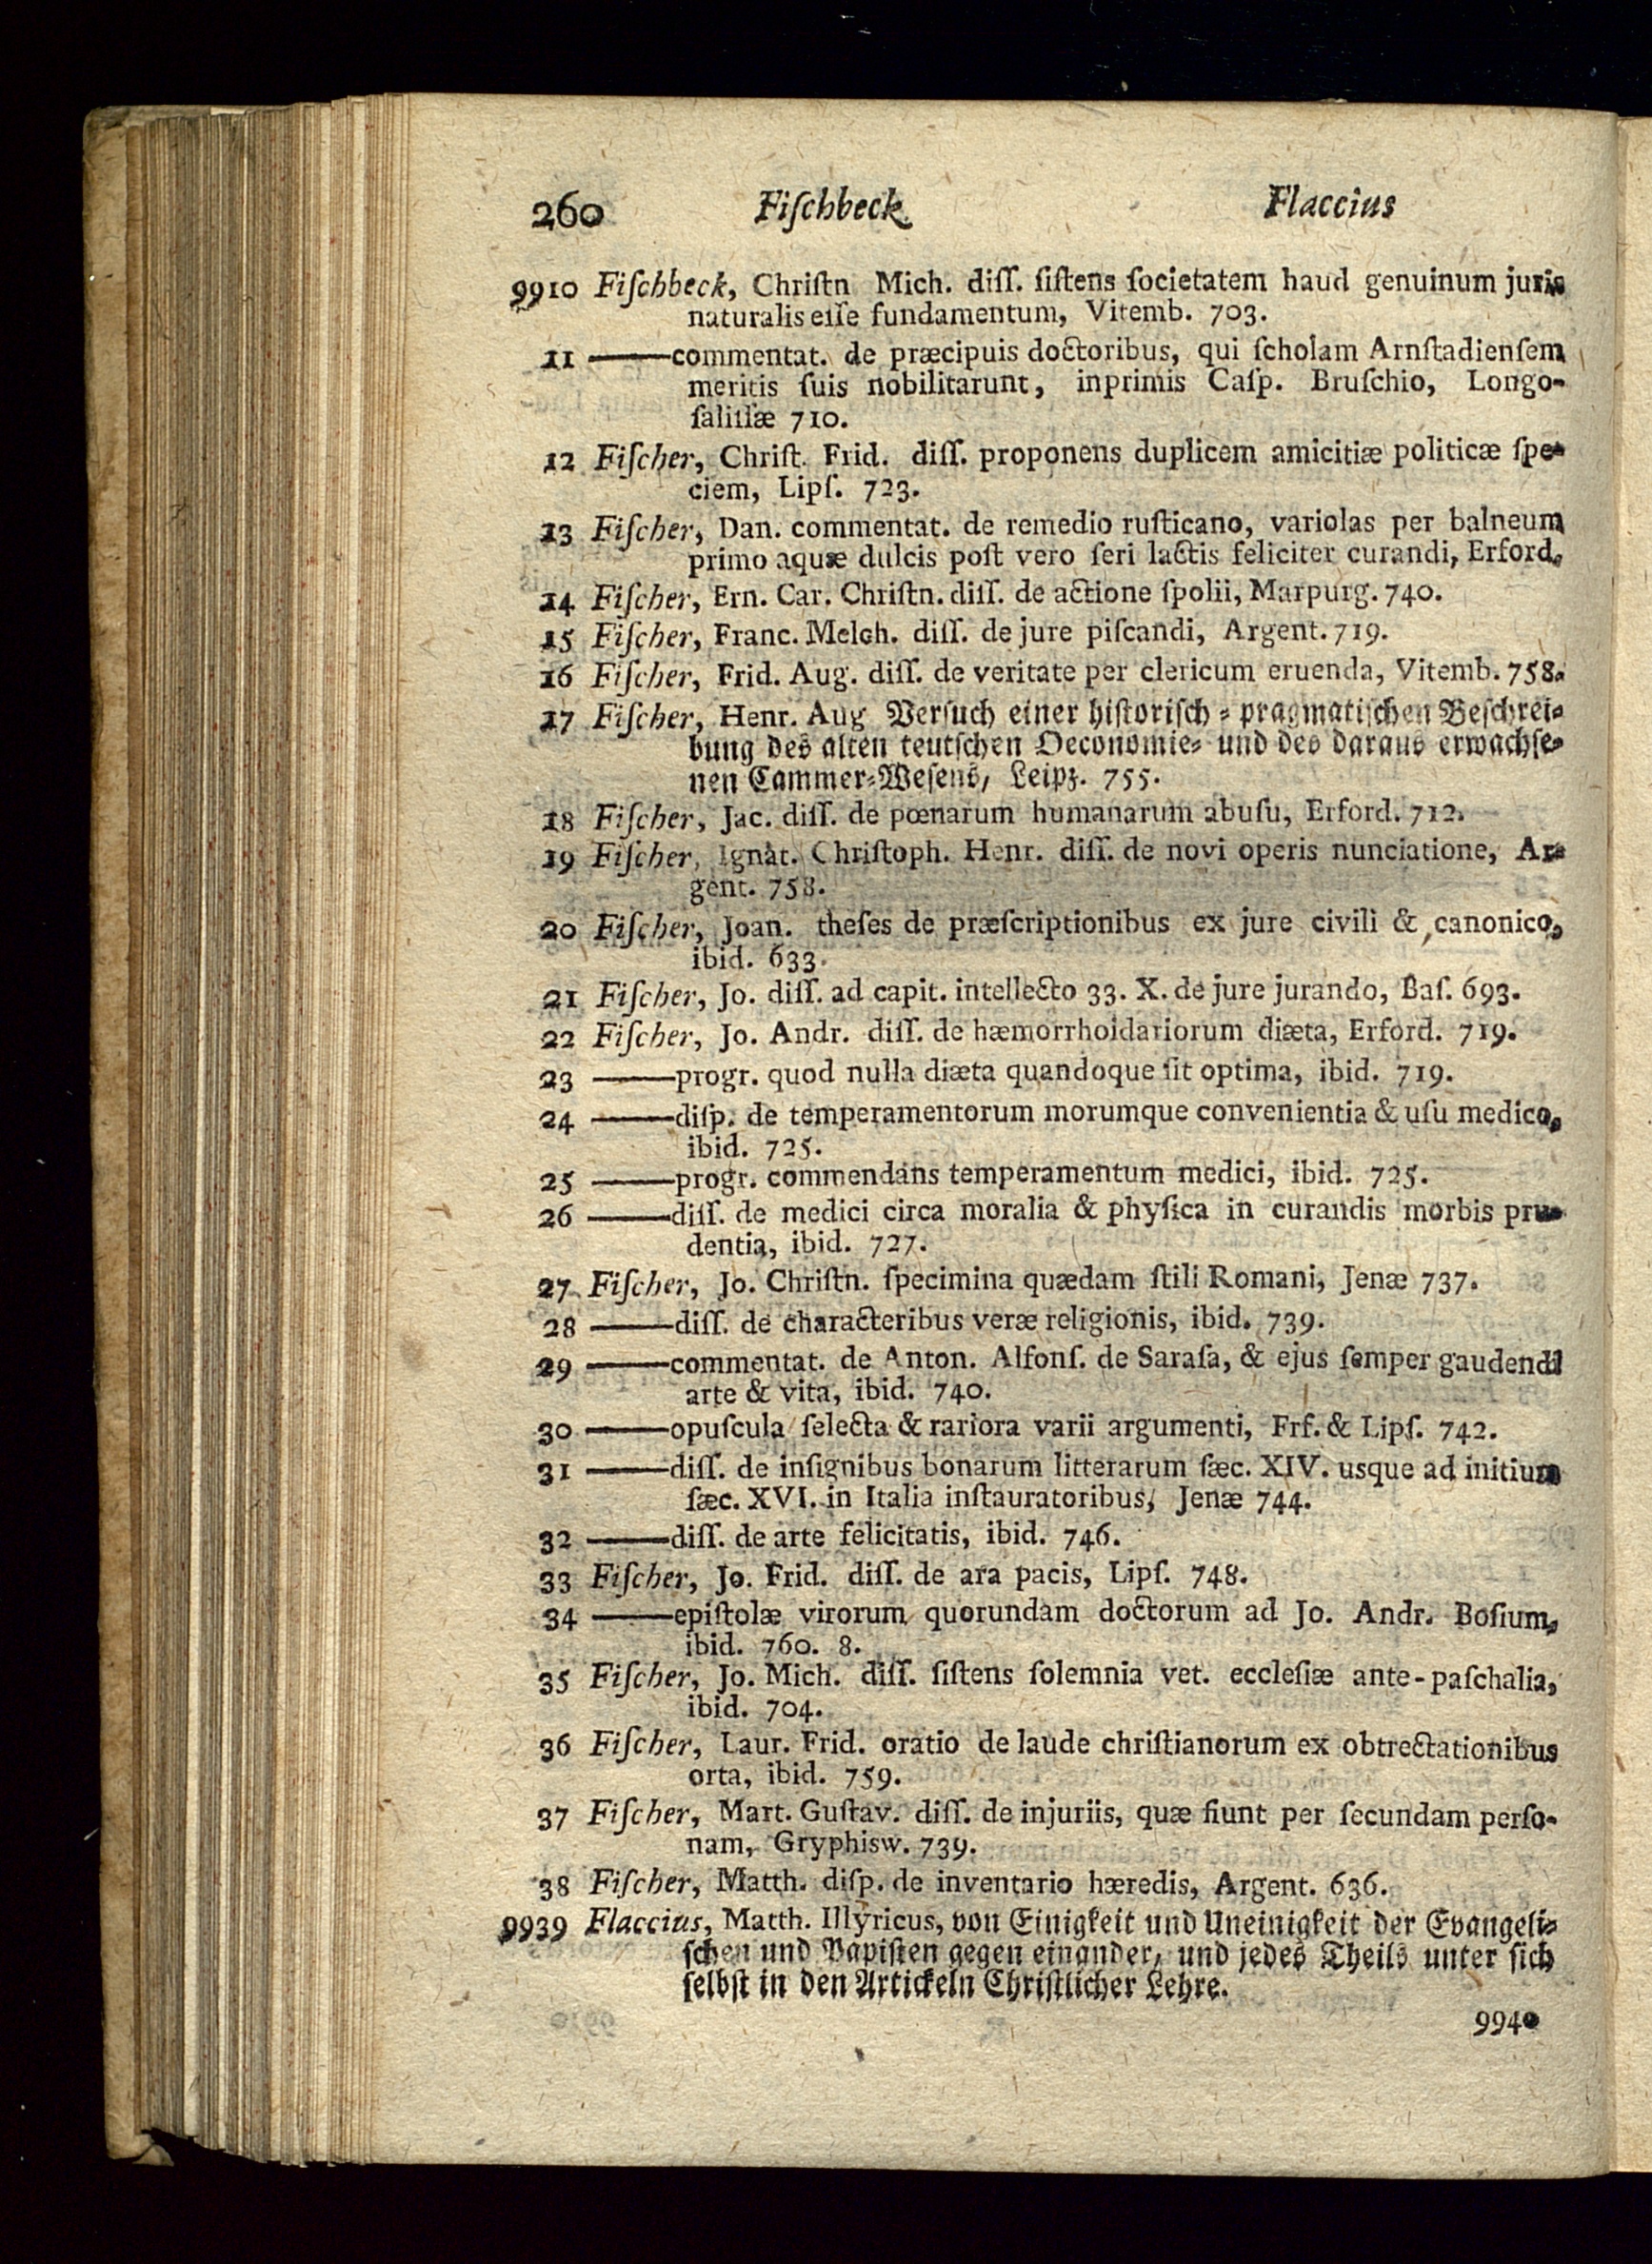 260 Fiſchbeck Flaccius
9910 Fiſchbeck, Chriſtn Mich. diſſ. ſiſtens ſocietatem haud genuinum juris
naturalis eſſe fundamentum, Vitemb. 703.
11 ——commentat. de præcipuis doctoribus, qui ſcholam Arnſtadienſem
meritis ſuis nobilitarunt, inprimis Caſp. Bruſchio, Longo-
ſaliſſæ 710.
12 Fiſcher, Chriſt. Frid. diſſ. proponens duplicem amicitiæ politicæ ſpe-
ciem, Lipſ. 723.
13 Fiſcher, Dan. commentat. de remedio ruſticano, variolas per balneum
primo aquæ dulcis poſt vero ſeri lactis feliciter curandi, Erford.
14 Fiſcher, Ern. Car. Chriſtn. diſſ. de actione ſpolii, Marpurg. 740.
15 Fiſcher, Franc. Melch. diſſ. de jure piſcandi, Argent. 719.
16 Fiſcher, Frid. Aug. diſſ. de veritate per clericum eruenda, Vitemb. 758.
17 Fiſcher, Henr. Aug Verſuch einer hiſtoriſch-pragmatiſchen Beſchrei-
bung des alten teutſchen Oeconomie- und des daraus erwachſe-
nen Cammer-Weſens, Leipz. 755.
18 Fiſcher, Jac. diſſ. de pœnarum humanarum abuſu, Erford. 712.
19 Fiſcher, Ignat. Chriſtoph. Henr. diſſ. de novi operis nunciatione, Ar-
gent. 758.
20 Fiſcher, Joan. theſes de præſcriptionibus ex jure civili & canonico,
ibid. 633.
21 Fiſcher, Jo. diſſ. ad capit. intellecto 33. X. de jure jurando, Baſ. 693.
22 Fiſcher, Jo. Andr. diſſ. de hæmorrhoidariorum diæta, Erford. 719.
23 ——progr. quod nulla diæta quandoque ſit optima, ibid. 719.
24 ——diſp. de temperamentorum morumque convenientia & uſu medico,
ibid. 725.
25 ——progr. commendans temperamentum medici, ibid. 725.
26 ——diſſ. de medici circa moralia & phyſica in curandis morbis pru-
dentia, ibid. 727.
27 Fiſcher, Jo. Chriſtn. ſpecimina quædam ſtili Romani, Jenæ 737.
28 ——diſſ. de characteribus veræ religionis, ibid. 739.
29 ——commentat. de Anton. Alfonſ. de Saraſa, & ejus ſemper gaudendi
arte & vita, ibid. 740.
30 ——opuſcula ſelecta & rariora varii argumenti, Frf. & Lipſ. 742.
31 ——diſſ. de inſignibus bonarum litterarum ſæc. XIV. usque ad initium
ſæc. XVI. in Italia inſtauratoribus, Jenæ 744.
32 ——diſſ. de arte felicitatis, ibid. 746.
33 Fiſcher, Jo. Frid. diſſ. de ara pacis, Lipſ. 748.
34 ——epiſtolæ virorum quorundam doctorum ad Jo. Andr. Boſium,
ibid. 760. 8.
35 Fiſcher, Jo. Mich. diſſ. ſiſtens ſolemnia vet. eccleſiæ ante-paſchalia,
ibid. 704.
36 Fiſcher, Laur. Frid. oratio de laude chriſtianorum ex obtrectationibus
orta, ibid. 759.
37 Fiſcher, Mart. Guſtav. diſſ. de injuriis, quæ fiunt per ſecundam perſo-
nam, Gryphisw. 739.
38 Fiſcher, Matth. diſp. de inventario hæredis, Argent. 636.
9939 Flaccius, Matth. Illyricus, von Einigkeit und Uneinigkeit der Evangeli-
ſchen und Papiſten gegen einander, und jedes Theils unter ſich
ſelbſt in den Artickeln Chriſtlicher Lehre.
9940